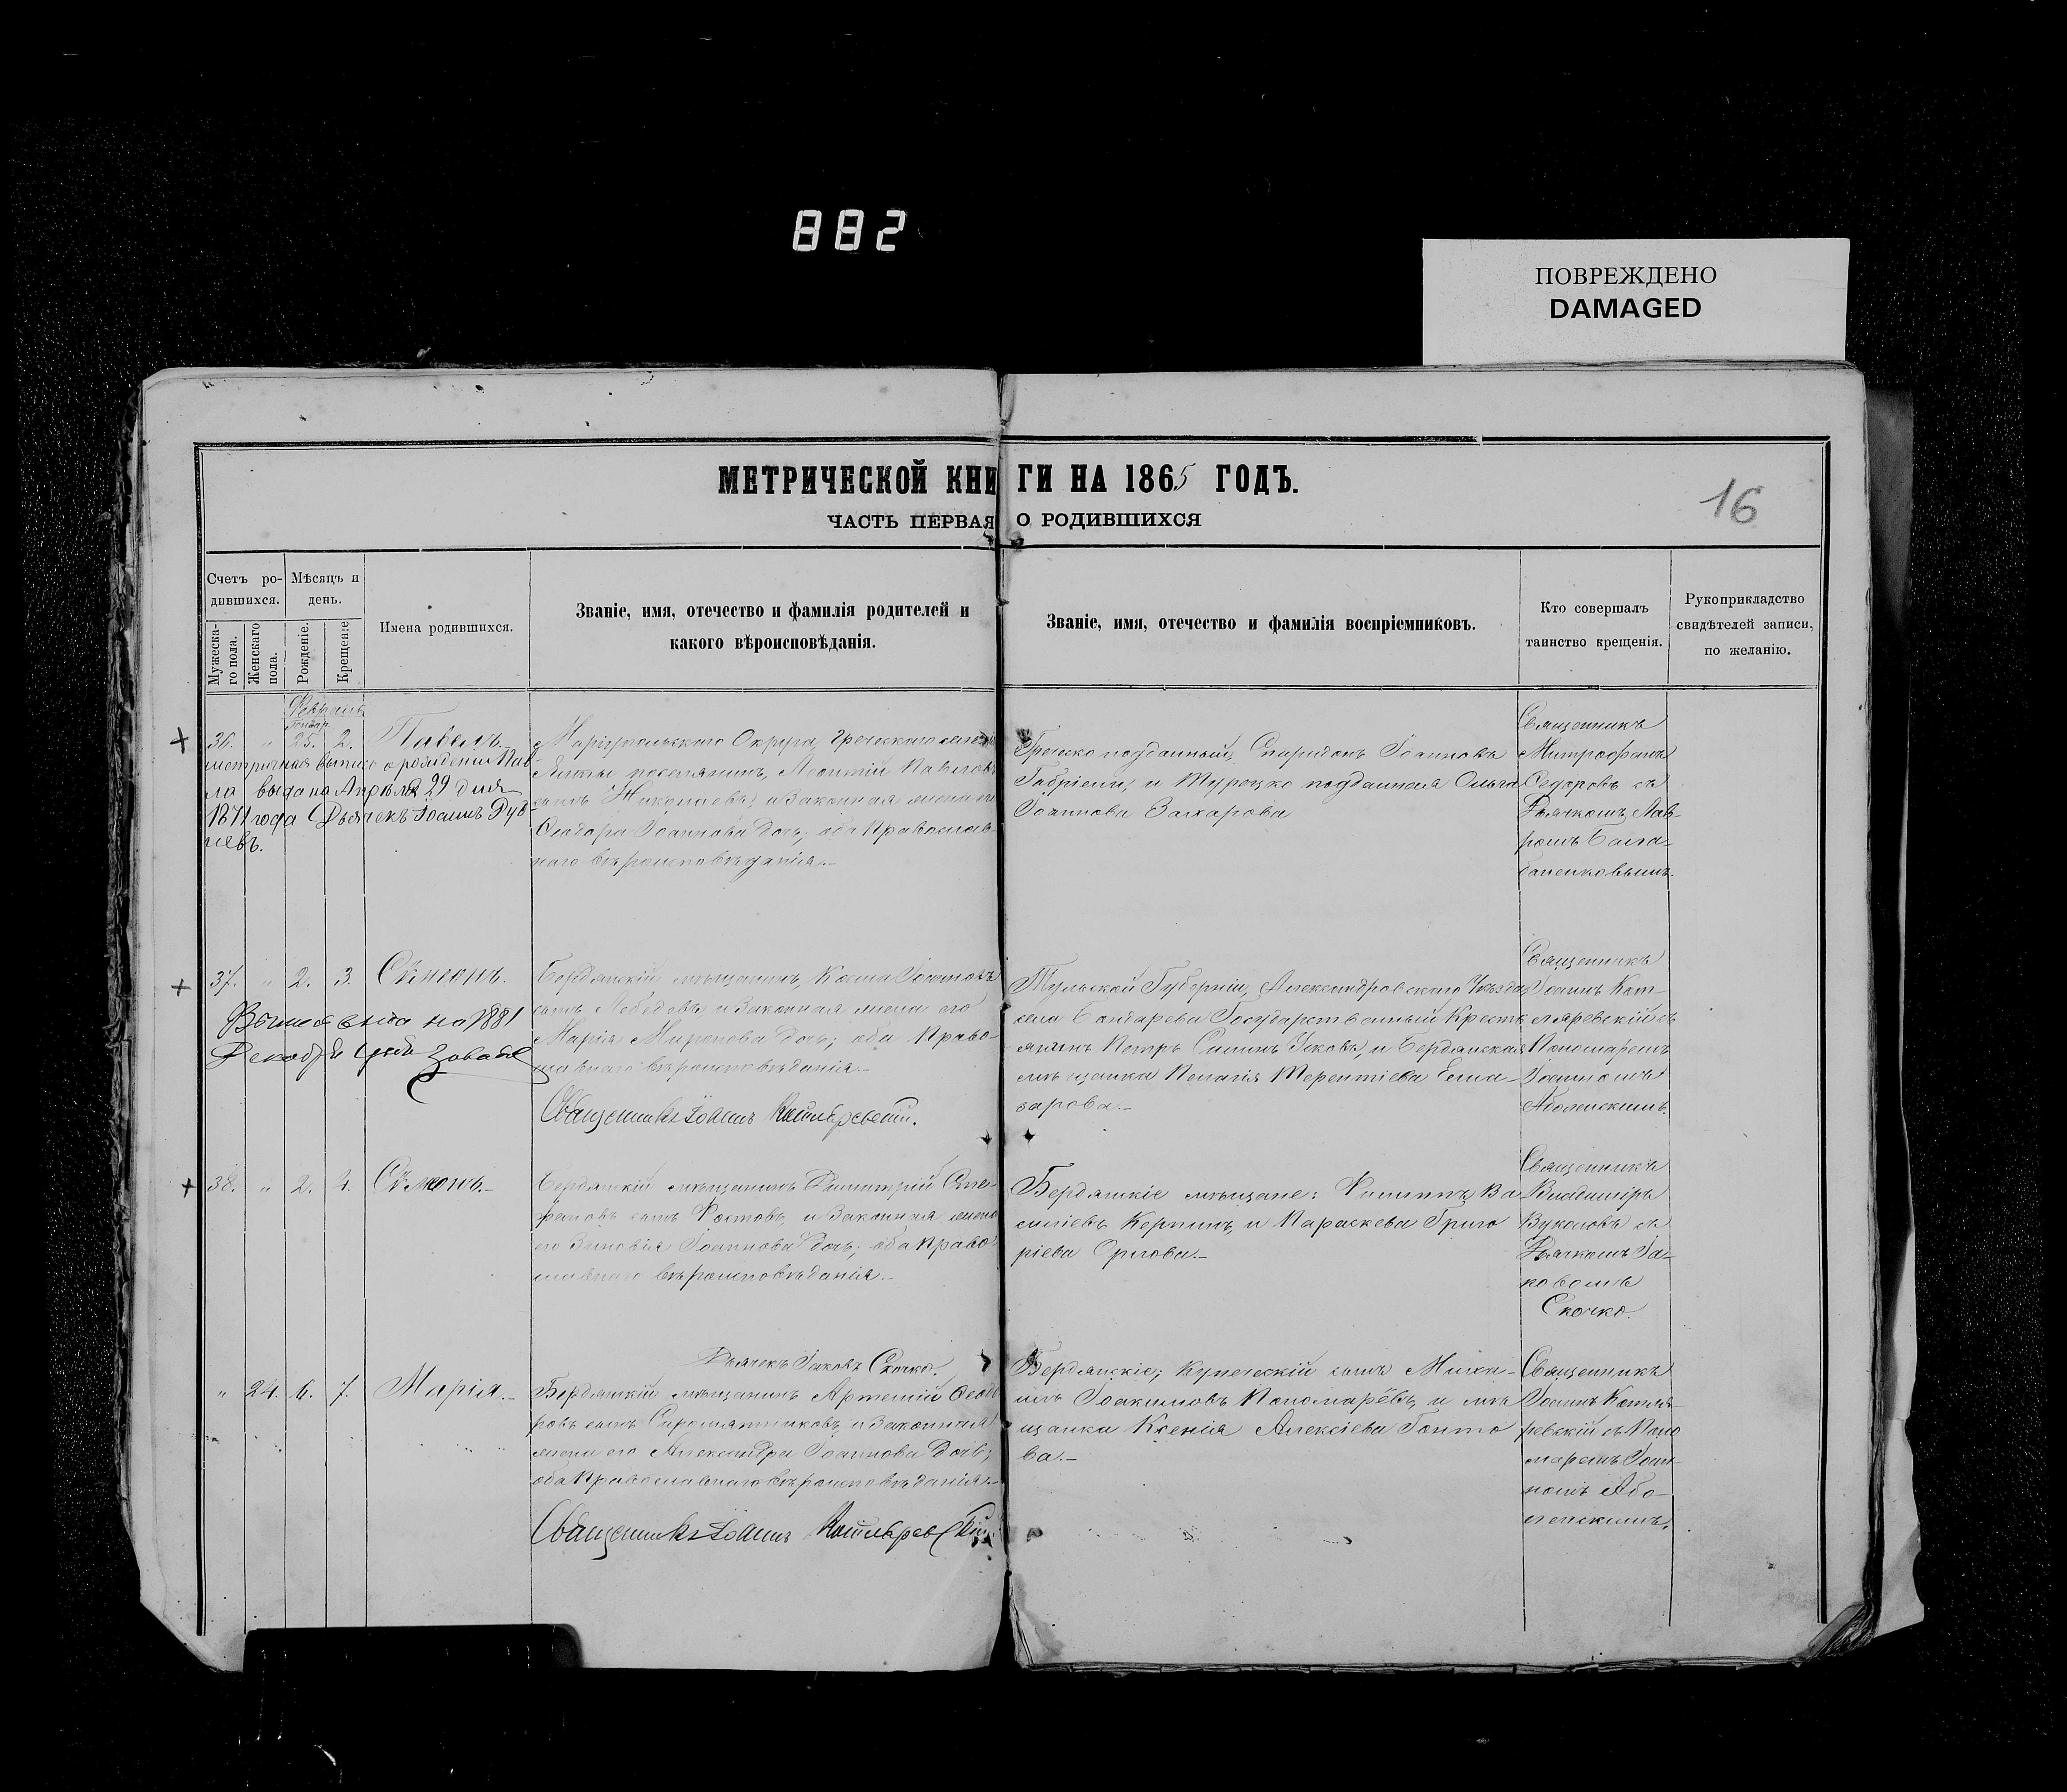 882
ПОВРЕЖДЕНО
DAMAGED
МЕТРИЧЕСКОЙ КНИГИ НА 1865 ГОДЪ.
16
ЧАСТЬ ПЕРВАЯ О РОДИВШИХСЯ
Счетъ ро-
дившихся.
Мужеска-
го пола.
Женскаго
пола.
Мѣсяцъ и
день.
Рожденіе.
Крещеніе
Имена родившихся.
Званіе, имя, отечество и фамилія родителей и
какого вѣроисповѣданія.
Званіе, имя, отечество и фамилія воспріемниковъ.
Кто совершалъ
таинство крещенія.
Рукоприкладство
свидѣтелей записи,
по желанію.
Февраль
Генвар.
36. " 25. 2. Павелъ.
метричная выпись о рожденіи Пав-
ла выдана Апрѣля 29 дня
1871 года Дьячекъ Іоаннъ Руд
невъ.
Маріупольскаго Округа, Греческаго
поселянинъ, Леонтій Павловъ
сынъ Николаевъ, и Законная жена его
Ѳеодора Іоаннова дочь; оба Православ-
наго вѣроисповѣданія.-
Греческо подданный, Спиридонъ Іоанновъ
Габріели, и Турецко подданная Ольга
Іоаннова Захарова
Священникъ
Митрофанъ
Ѳедоровъ съ
Дьячкомъ Лав-
ромъ Бала-
баненковымъ.
37. " 2. 3. Сѵмеонъ.
на 1881
Декабря
Бердянскій мѣщанинъ, Косма Іоанновъ
сынъ Лебедевъ и Законная жена его
Марія Миронова дочь; оба Право-
славнаго вѣроисповѣданія.-
Священникъ Іоаннъ Котляревскій.
Тульской Губерніи, Александровскаго Уѣзда
села Бондарева Государственный Кресть
янинъ Петръ Яковъ, и Бердянская
мѣщанка Пелагія Терентіева Елиа-
зарова.-
Священникъ
Іоаннъ Кот-
ляревскій съ
Пономаремъ
Іоанномъ
Аболенскимъ.
38. " 2. 4. Сѵмеонъ.-
Бердянскій мѣщанинъ Димитрій Сте-
фановъ сынъ Ростовъ, и Законная жена
его Зиновія Іоаннова дочь; оба Право-
славнаго вѣроисповѣданія.-
Бердянскіе мѣщане: Филиппъ Ва
силіевъ Керпинъ, и Параскева Григо
ріева Орлова.-
Священникъ
Владиміръ
Вуколовъ съ
Дьячкомъ Іа-
ковомъ
Скочко.
Дьячекъ Іаковъ Скочко.
" 24. 6. 7. Марія.-
Бердянскій мѣщанинъ Артемій Ѳеодо
ровъ сынъ Сиромятниковъ, и Законная
жена его Александра Іоаннова дочь;
оба Православнаго вѣроисповѣданія.-
Священникъ Іоаннъ Котляревскій
Бердянскіе; Купеческій сынъ Миха-
илъ Іоакимовъ Пономарёвъ, и мѣ
щанка Ксенія Алексіева Гонто
ва.-
Священникъ
Іоаннъ Котля-
ревскій съ Поно
маремъ Іоан-
номъ Або-
ленскимъ.